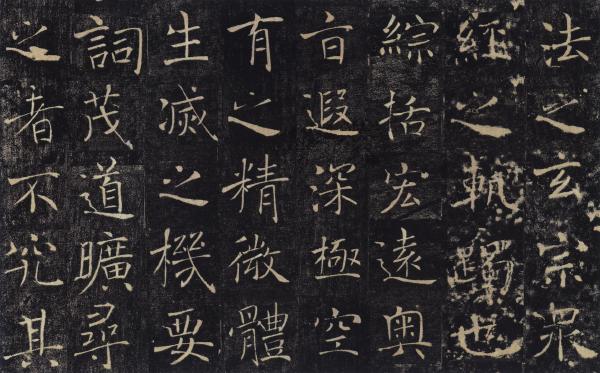 法之玄宗衆
經之軌躅也
綜括宏遠奥
旨遐深極空
有之精微體
生滅之機要
詞茂道曠尋
之者不究其